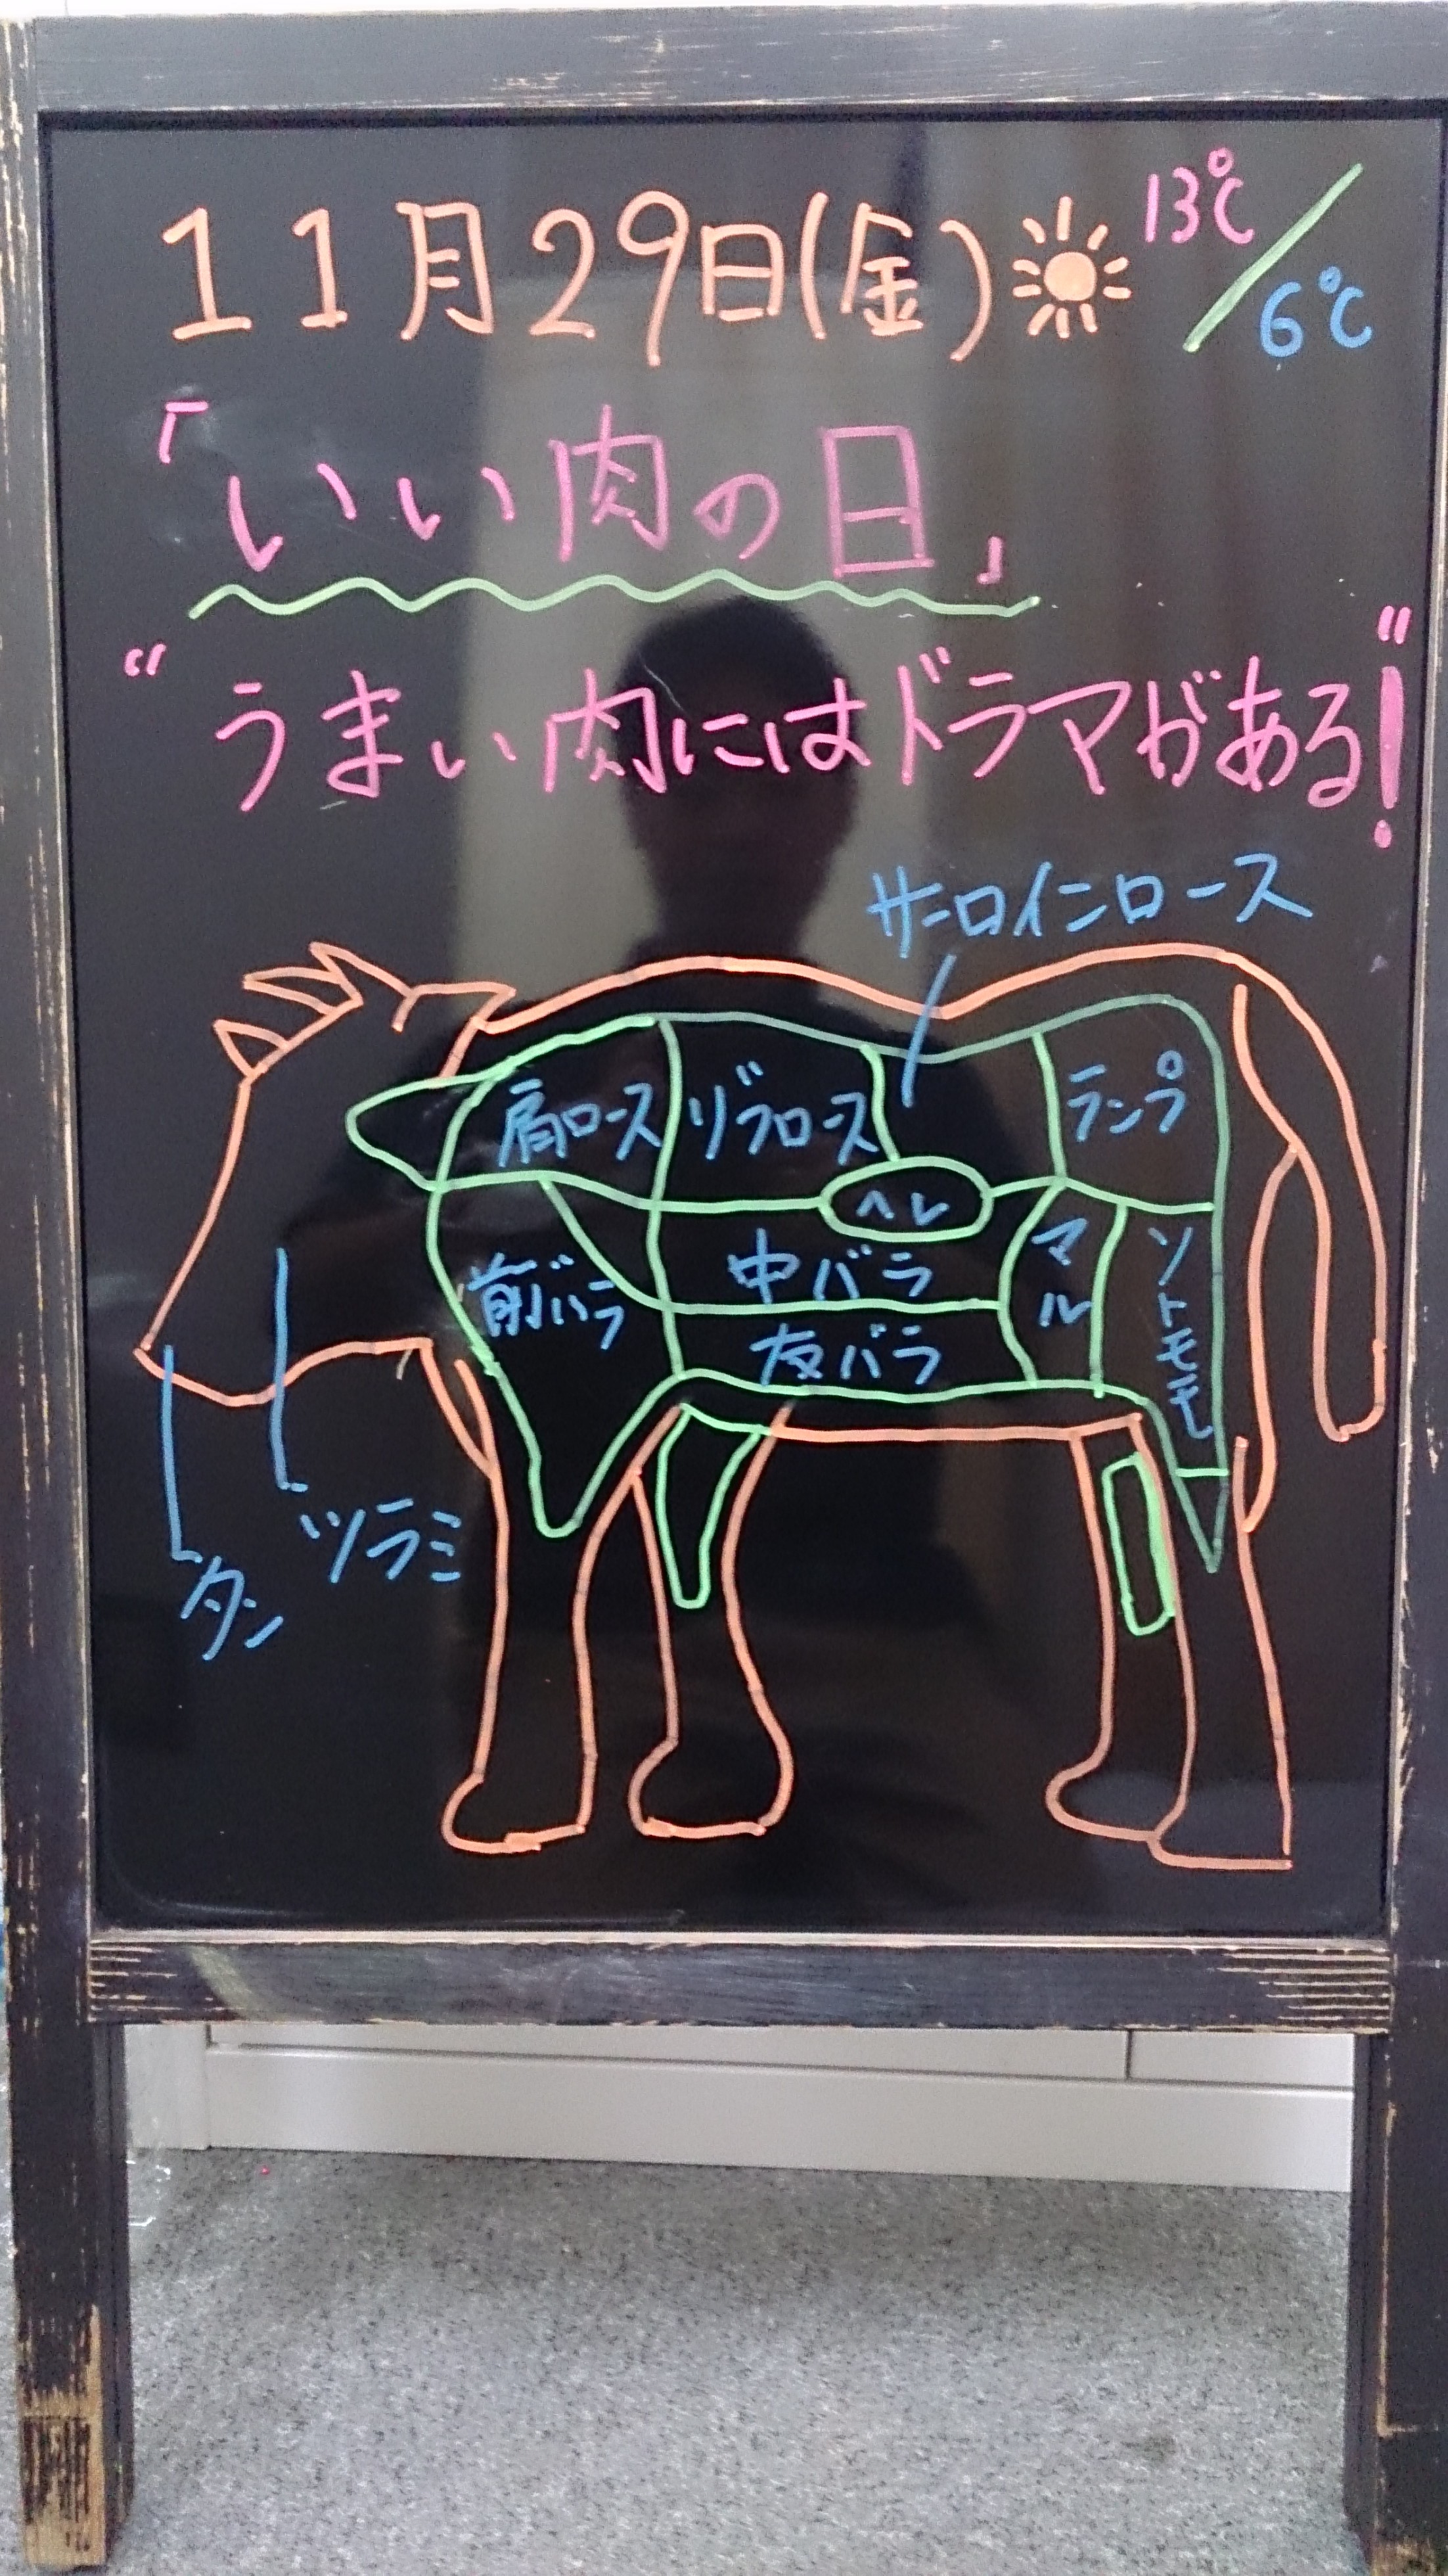 11月29日(金) 13℃/6℃
「いい肉の日」
“うまい肉にはドラマがある!”
サーロインロース
肩ロース
リブロース
ランプ
ヘレ
前バラ
中バラ
マル
ソトモモ
友バラ
ツラミ
タン